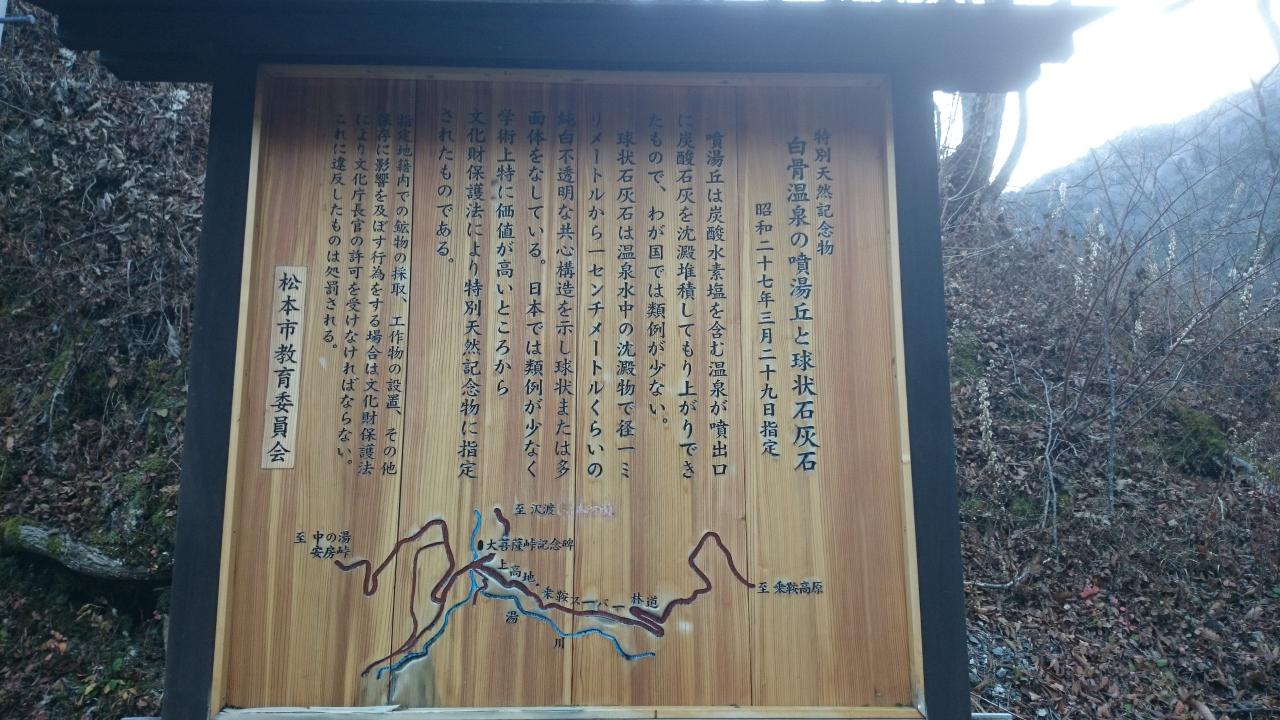 特別天然記念物
白骨温泉の噴湯丘と球状石灰石
昭和二十七年三月二十九日指定
噴湯丘は炭酸水素塩を含む温泉が噴出口
に炭酸石灰を沈澱堆積してもり上がりでき
たもので、わが国では類例が少ない。
球状石灰石は温泉水中の沈澱物で径一ミ
リメートルから一センチメートルくらいの
純白不透明な共心構造を示し球状または多
面体をなしている。日本では類例が少なく
学術上特に価値が高いところから
文化財保護法により特別天然記念物に指定
されたものである。
指定地籍内での鉱物の採取、工作物の設置、その他
保存に影響を及ぼす行為をする場合は文化財保護法
により文化庁長官の許可を受けなければならない。
これに違反したものは処罰される。
松本市教育委員会
至 沢渡
大菩薩峠記念碑
至 中の湯
安房峠
上高地
乗鞍スーパー林道
至 乗鞍高原
湯川